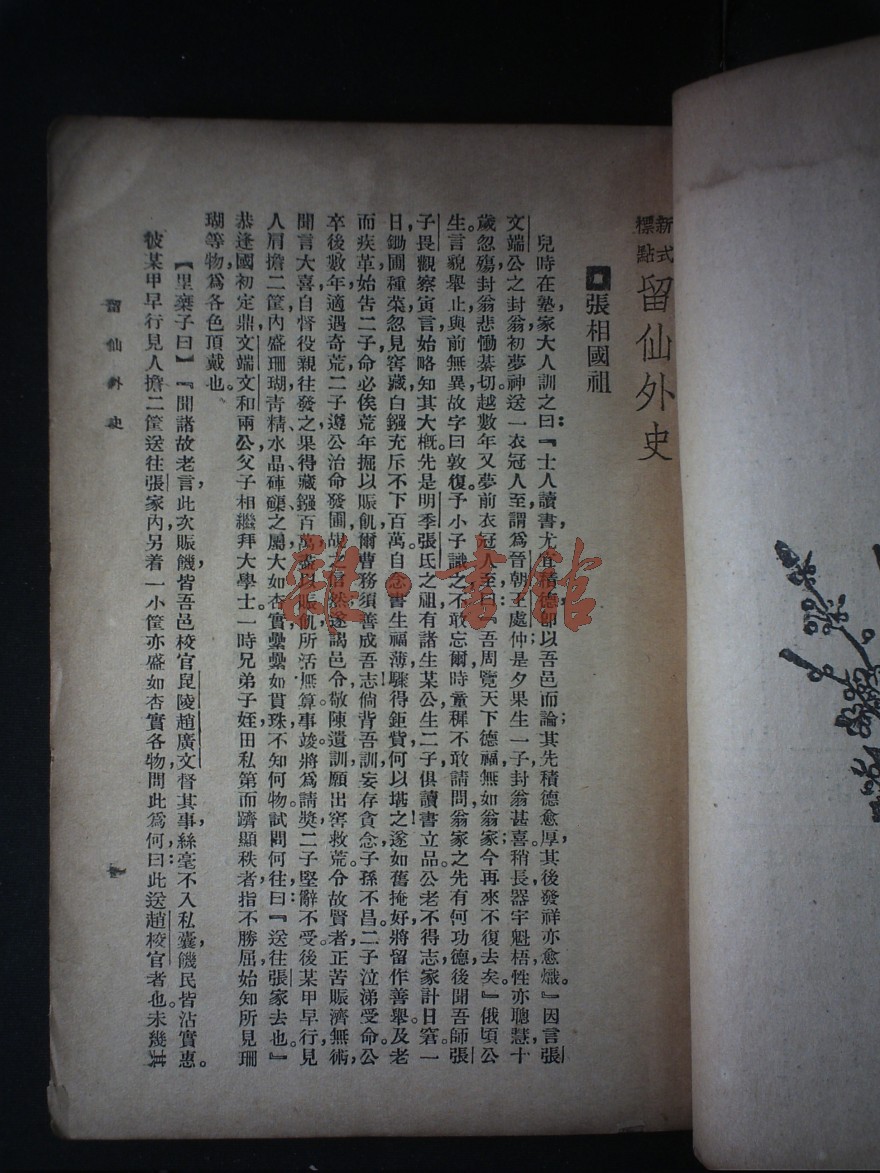 新式標點 留仙外史
張相國祖
兒時在塾，家大人訓之曰：『士人讀書，尤宜積德，卽以吾邑而論；其先積德愈厚，其後發祥亦愈熾。』因言張
文端公之封翁，初夢神送一衣冠人至，謂爲晉朝王處仲；是夕果生一子，封翁甚喜；稍長，器宇魁梧，性亦聰慧，十
歲忽殤，封翁悲慟綦切，越數年，又夢前衣冠人至，曰：『吾周覽天下德福，無如翁家，今再來不復去矣。』俄頃公
生。言貌舉止，與前無異，故字曰敦復。予小子識之，不敢忘，爾時童穉，不敢請問，翁家之先有何功德，後聞吾師張
子畏觀察寅言，始略知其大槪。先是明季張氏之祖，有諸生某公，生二子，俱讀書立品。公老不得志，家計日窘。一
日，鋤圃種菜，忽見窖藏，白鏹充斥，不下百萬。自念書生福薄，驟得鉅貲，何以堪之！遂如舊掩好，將留作善舉。及老
而疾革，始告二子，命必俟荒年掘以賑飢，爾曹務須善成吾志！倘背吾訓，妄存貪念，子孫不昌。二子泣涕受命。公
卒後數年，適遇奇荒，二子遵公治命，發圃故之信然，遂謁邑令，敬陳遺訓，願出窖救荒。令故賢者，正苦賑濟無術，
聞言大喜，自督役親往發之，果得藏鏹百萬，盡以賑飢，所活無算。事竣，將爲請獎，二子堅辭不受。後某甲早行，見
人肩擔二筐，內盛珊瑚、靑精、水晶、硨磲之屬，大如杏實，纍纍如貫珠，不知何物。試問何往，曰：『送往張家去也。』
恭逢國初定鼎，文端文和兩公，父子相繼拜大學士。一時兄弟子姪，田私第而躋顯秩者，指不勝屈，始知所見珊
瑚等物，爲各色頂戴也。
【里棄子曰】『聞諸故老言，此次賑饑，皆吾邑校官毘陵趙廣文督其事，絲毫不入私囊，饑民皆沾實惠。
彼某甲早行見人擔二筐送往張家，內另着一小筐，亦盛如杏實各物，問此爲何，曰：此送趙校官者也。未幾其
留仙外史